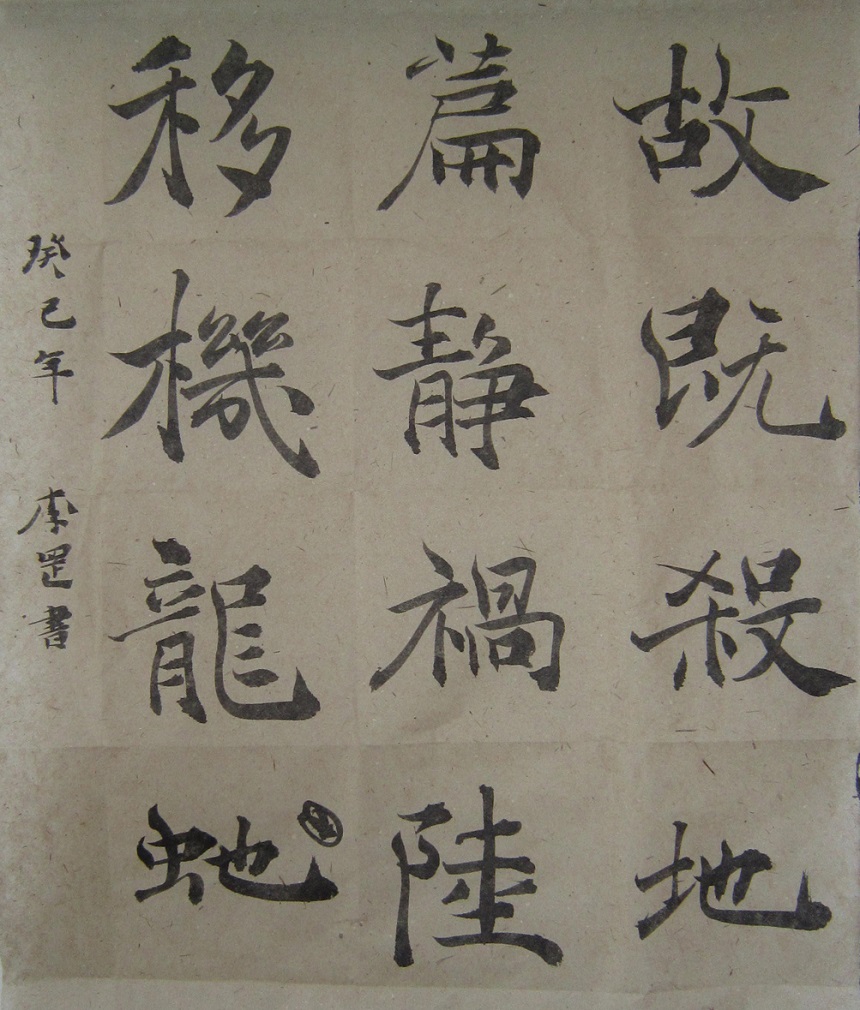 故既殺地
篇静禍陸
移機龍虵
癸巳年 李罡書